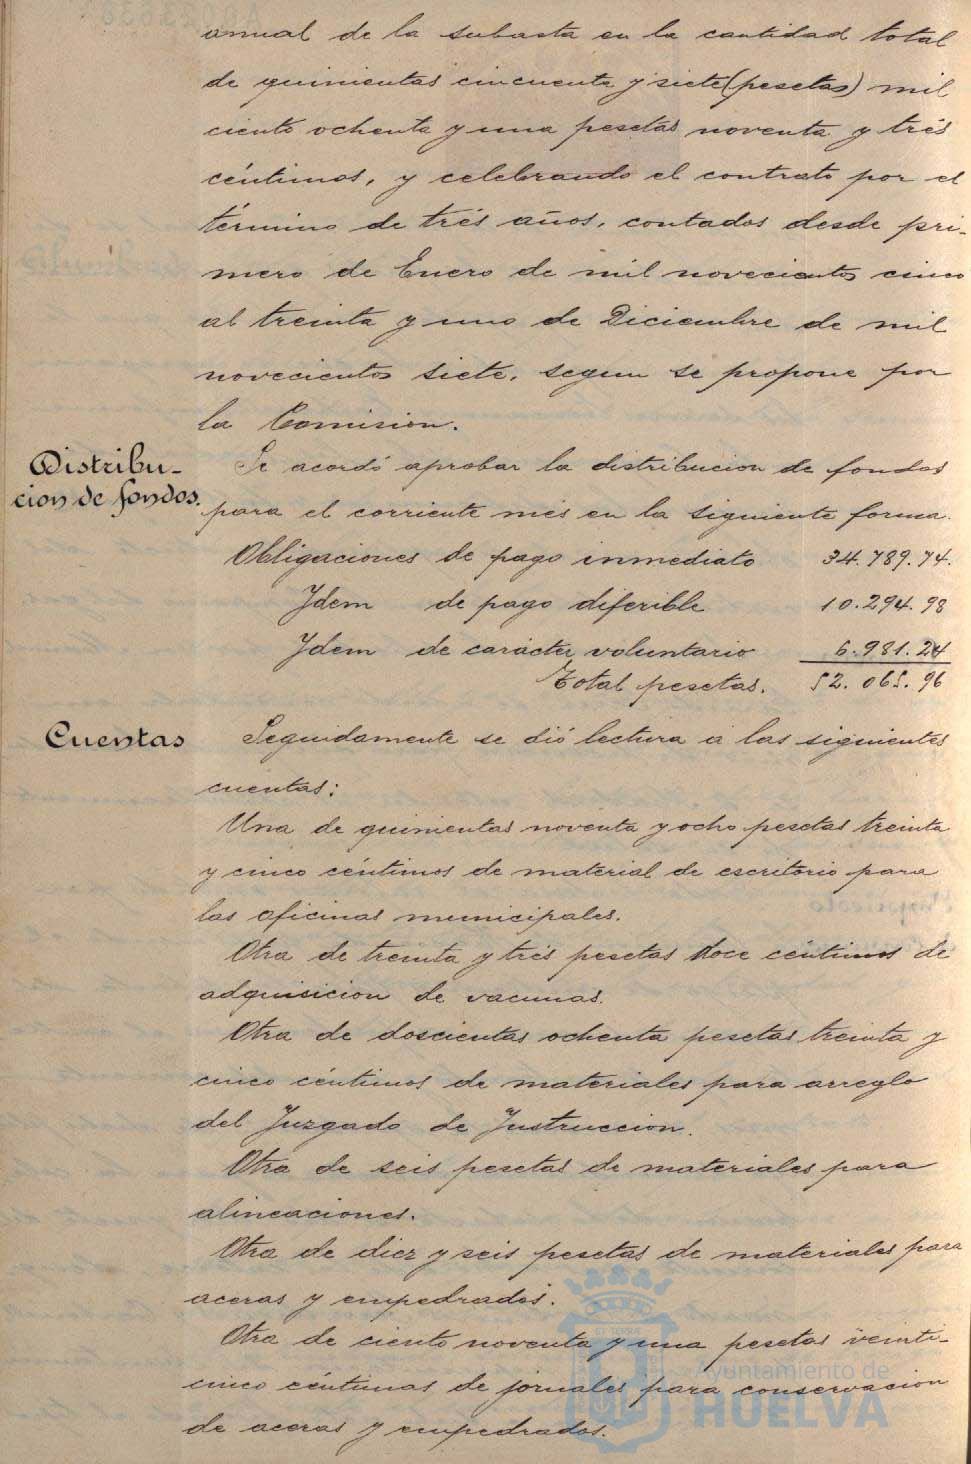 anual de la subasta en la cantidad total
de quinientas cincuenta y siete (pesetas) mil
ciento ochenta y una pesetas noventa y trés
céntimos, y celebrando el contrato por el
término de trés años, contados desde pri-
mero de Enero de mil novecientos cinco
al treinta y uno de Diciembre de mil
novecientos siete, segun se propone por
la Comision.
Distribu-
cion de fondos.
Se acordó aprobar la distribucion de fondos
para el corriente més en la siguiente forma.
Obligaciones de pago inmediato 34.789.74.
Idem de pago diferible 10.294.98
Idem de carácter voluntario 6.981.24
Total pesetas. 52.065.96
Cuentas
Seguidamente se dió lectura a las siguientes
cuentas:
Una de quinientas noventa y ocho pesetas treinta
y cinco céntimos de material de escritorio para
las oficinas municipales.
Otra de treinta y trés pesetas doce céntimos de
adquisicion de vacunas.
Otra de doscientas ochenta pesetas treinta y
cinco céntimos de materiales para arreglo
del Juzgado de Instruccion.
Otra de seis pesetas de materiales para
alineaciones.
Otra de diez y seis pesetas de materiales para
aceras y empedrados.
Otra de ciento noventa y una pesetas veinti-
cinco céntimos de jornales para conservacion
de aceras y empedrados.
Ayuntamiento de
HUELVA